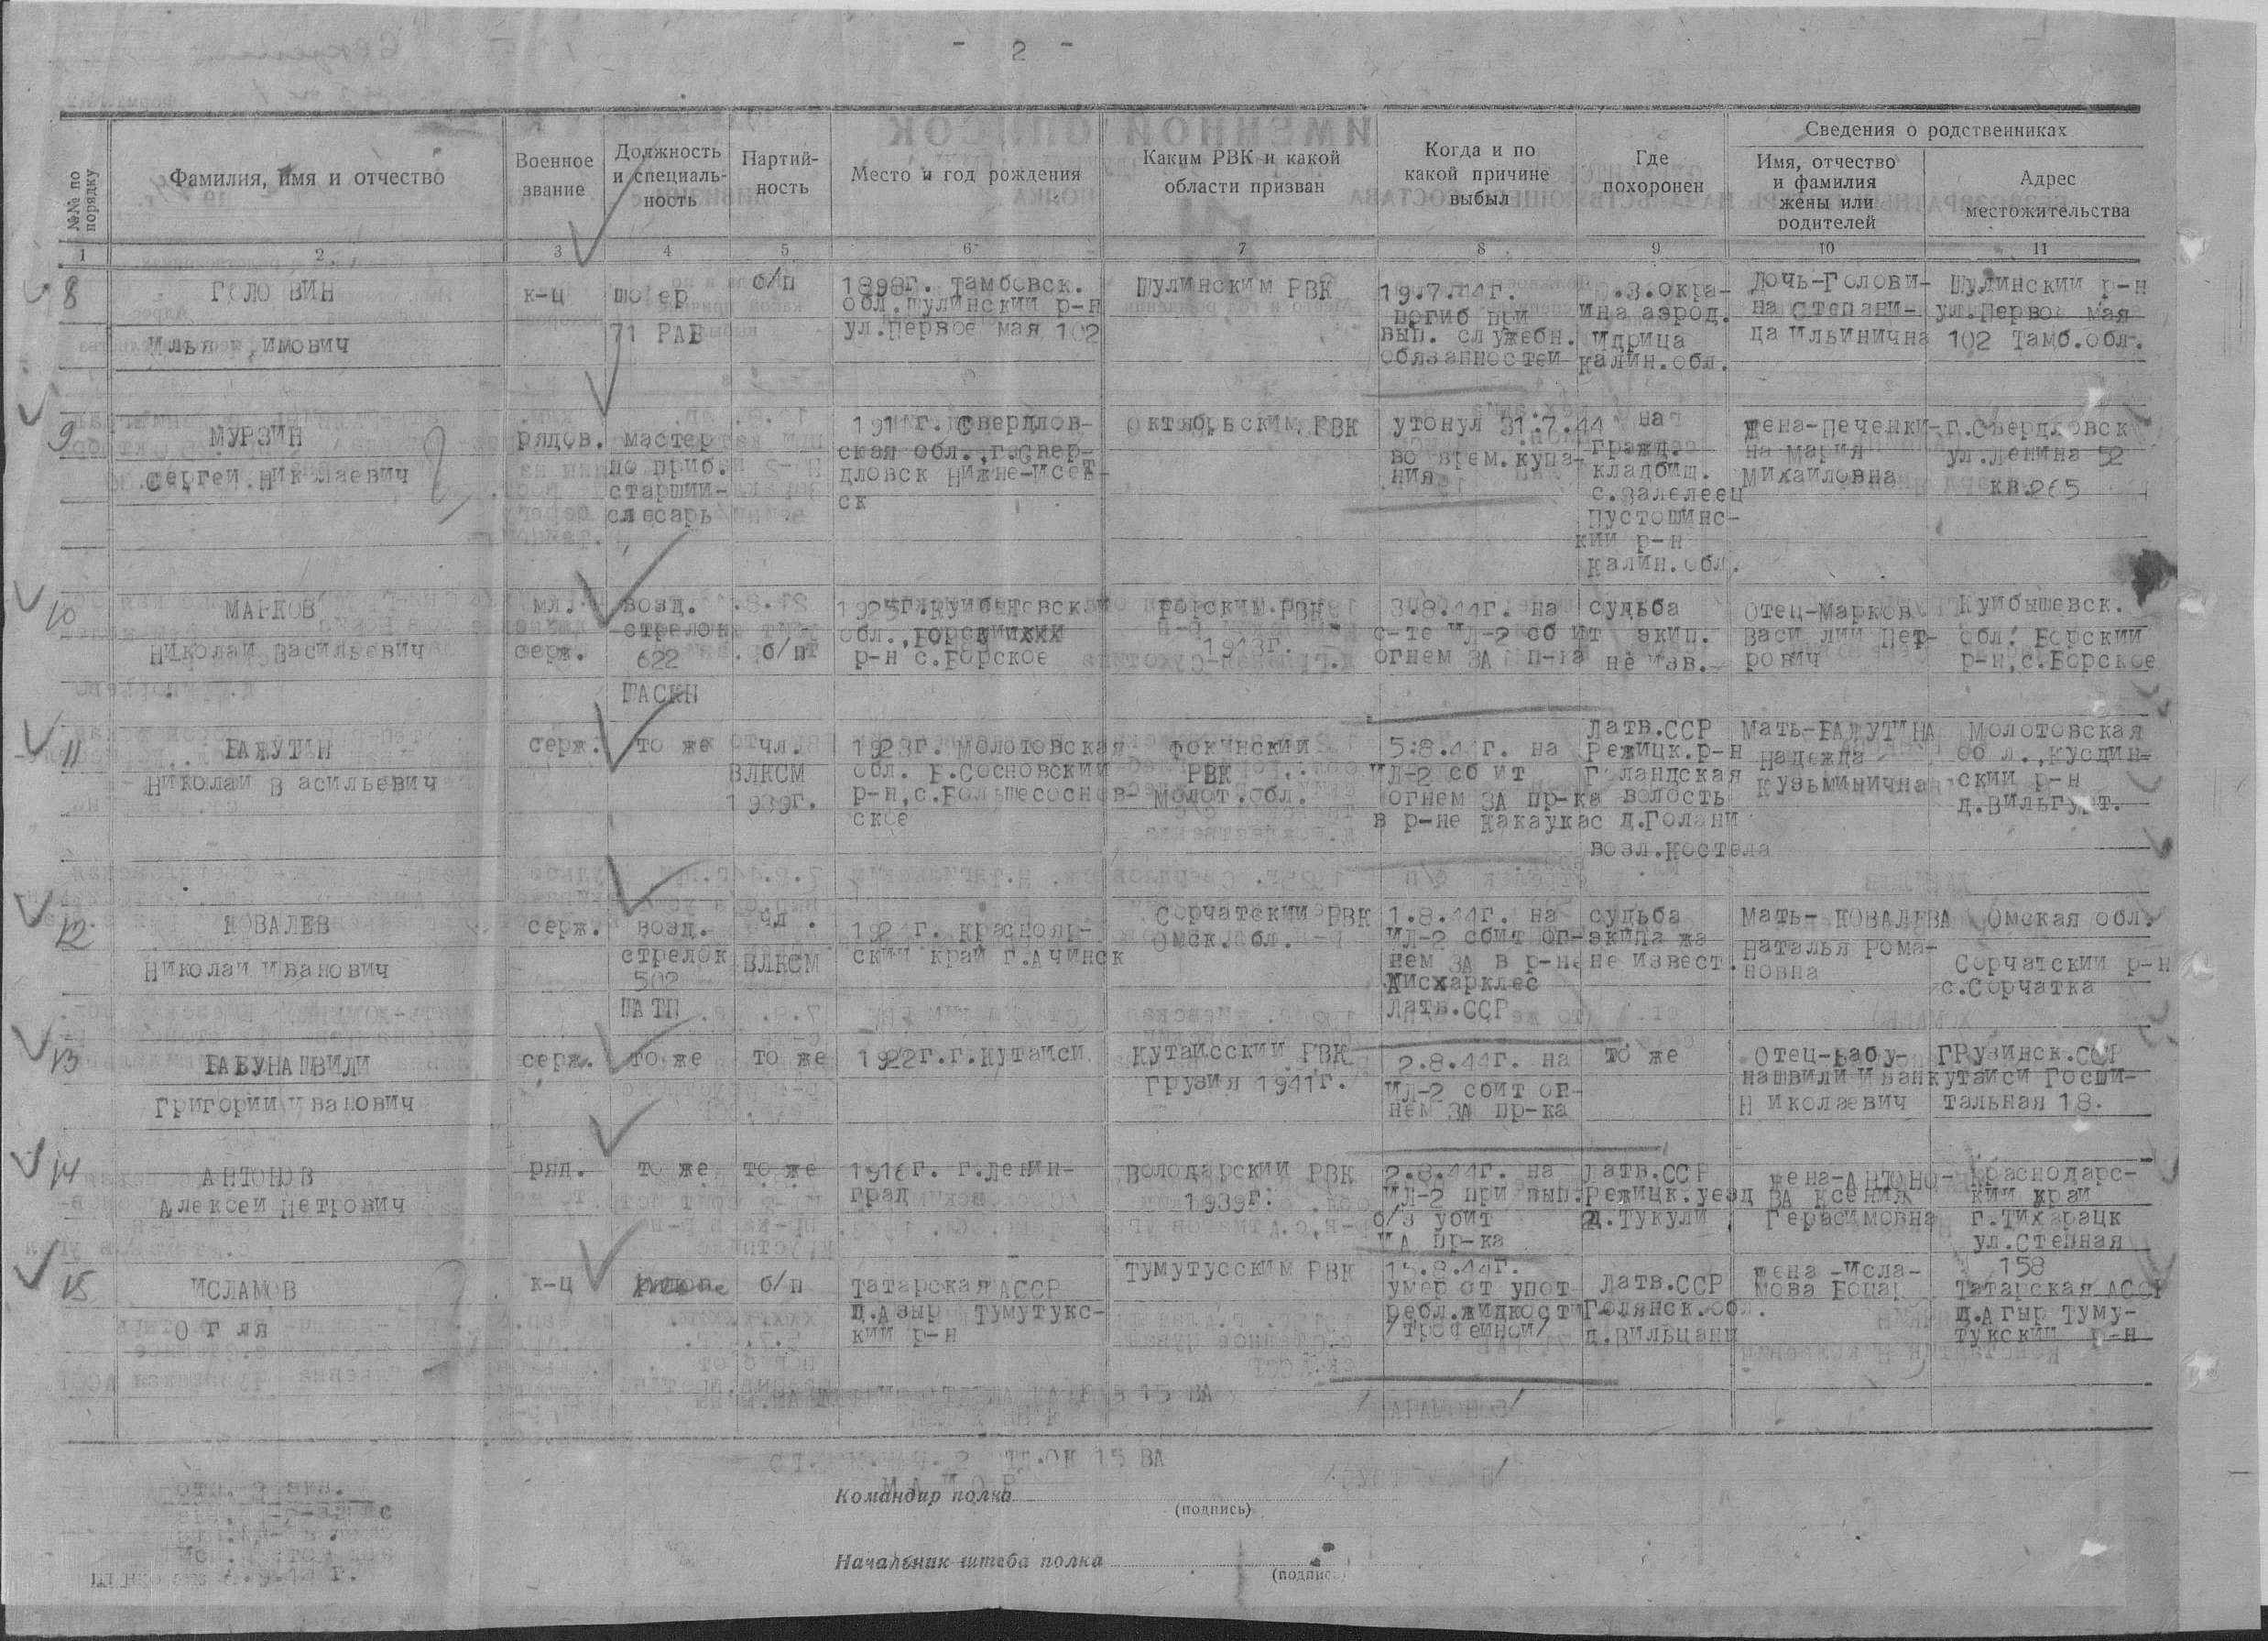 - 2 -
№№ по порядку
Фамилия, имя и отчество
Военное звание
Должность и специаль-ность
Партий-ность
Место и год рождения
Каким РВК и какой области призван
Когда и по какой причине выбыл
Где похоронен
Сведения о родственниках
Имя, отчество и фамилия жены или родителей
Адрес местожительства
1 2 3 4 5 6 7 8 9 10 11
8 ГОЛОВИН к-ц б/п 1898г. Тамбовск. Шулинским РВК 19.7.44г. .З.окра- Дочь-Голови- Шулинский р-н
обл.Шулинский р-н погиб при ина аэрод. на Степани- ул.Первое мая
Илья имович 71 РАБ ул.Первое мая 102 вып. служебн. Идрица да Ильинична 102 Тамб.обл.
обязанностей Калин.обл.
9 МУРЗИН рядов. мастер Свердлов- Октябрьским РВК утонул 31.7.44 на жена-Печенки- г.Свердловск
по приб. ская обл.,г.Свер- во врем.купа- гражд. на Мария ул.Ленина 52
Сергей Николаевич старший- дловск Нижне-Исет- ния кладбищ. Михайловна кв.265
слесарь ск с.Залелеец
Пустошинс-
кий р-н
Калин.обл.
10 МАРКОВ мл. возд. 1925г.Куйбышевская Борским РВК 3.8.44г. на судьба Отец-Марков Куйбышевск.
стрелок обл.,Борский с-те ИЛ-2 сбит экип. Василий Пет- обл. Борский
Николай Васильевич серж. 622 б/п р-н с.Борское огнем ЗА п-ка не изв. рович р-н,с.Борское
ШАСКП
11 БАЖУТИН серж. то же чл. 1923г. Молотовская Фокинский 5.8.44г. на Латв.ССР Мать-БАЖУТИНА Молотовская
ВЛКСМ обл. Б.Сосновский РВК ИЛ-2 сбит Режицк.р-н Надежда обл.,Куедин-
Николай Васильевич 1939г. р-н,с.Большесоснов- Молот.обл. огнем ЗА пр-ка Голандская Кузьминична ский р-н
ское в р-не Какаукас волость д.Вильгурт.
д.Голани
возл.Костела
12 КОВАЛЕВ серж. возд. чл. Краснояр- Сорчатский РВК 1.8.44г. на судьба Мать- КОВАЛЕВА Омская обл.
стрелок ВЛКСМ ский край г.Ачинск Омск.обл. ИЛ-2 сбит ог- экипажа Наталья Рома- Сорчатский р-н
Николай Иванович 502 нем ЗА в р-не не извест. новна с.Сорчатка
ШАТП Мисхарклес
Латв.ССР
13 БАБУНАШВИЛИ серж. то же то же 1922г.г.Кутаиси Кутаисский РВК 2.8.44г. на то же Отец-Бабу- Грузинск.ССР
Грузия 1941г. ИЛ-2 сбит ог- нашвили Иван Кутаиси Госпи-
Григорий Иванович нем ЗА пр-ка Николаевич тальная 18.
14 АНТОНОВ ряд. то же то же г.Ленин- Володарский РВК 2.8.44г. на Латв.ССР жена-АНТОНО- Краснодарс-
Алексей Петрович град 1939г. ИЛ-2 при вып. Режицк.уезд ВА Ксения кий край
б/з убит д.Тукули Герасимовна г.Тихарацк
ИА пр-ка ул.Степная
158
15 ИСЛАМОВ к-ц б/п Татарская АССР Тумутусским РВК 15.8.44г. Латв.ССР жена -Исла- Татарская АССР
Огля д.Азыр Тумутукс- умер от упот Голянск.обл. мова Боцар д.Агыр Туму-
кий р-н ребл.жидкости д.Вильцаны тукский р-н
/трофейной/
Командир полка
(подпись)
Начальник штаба полка
(подпись)